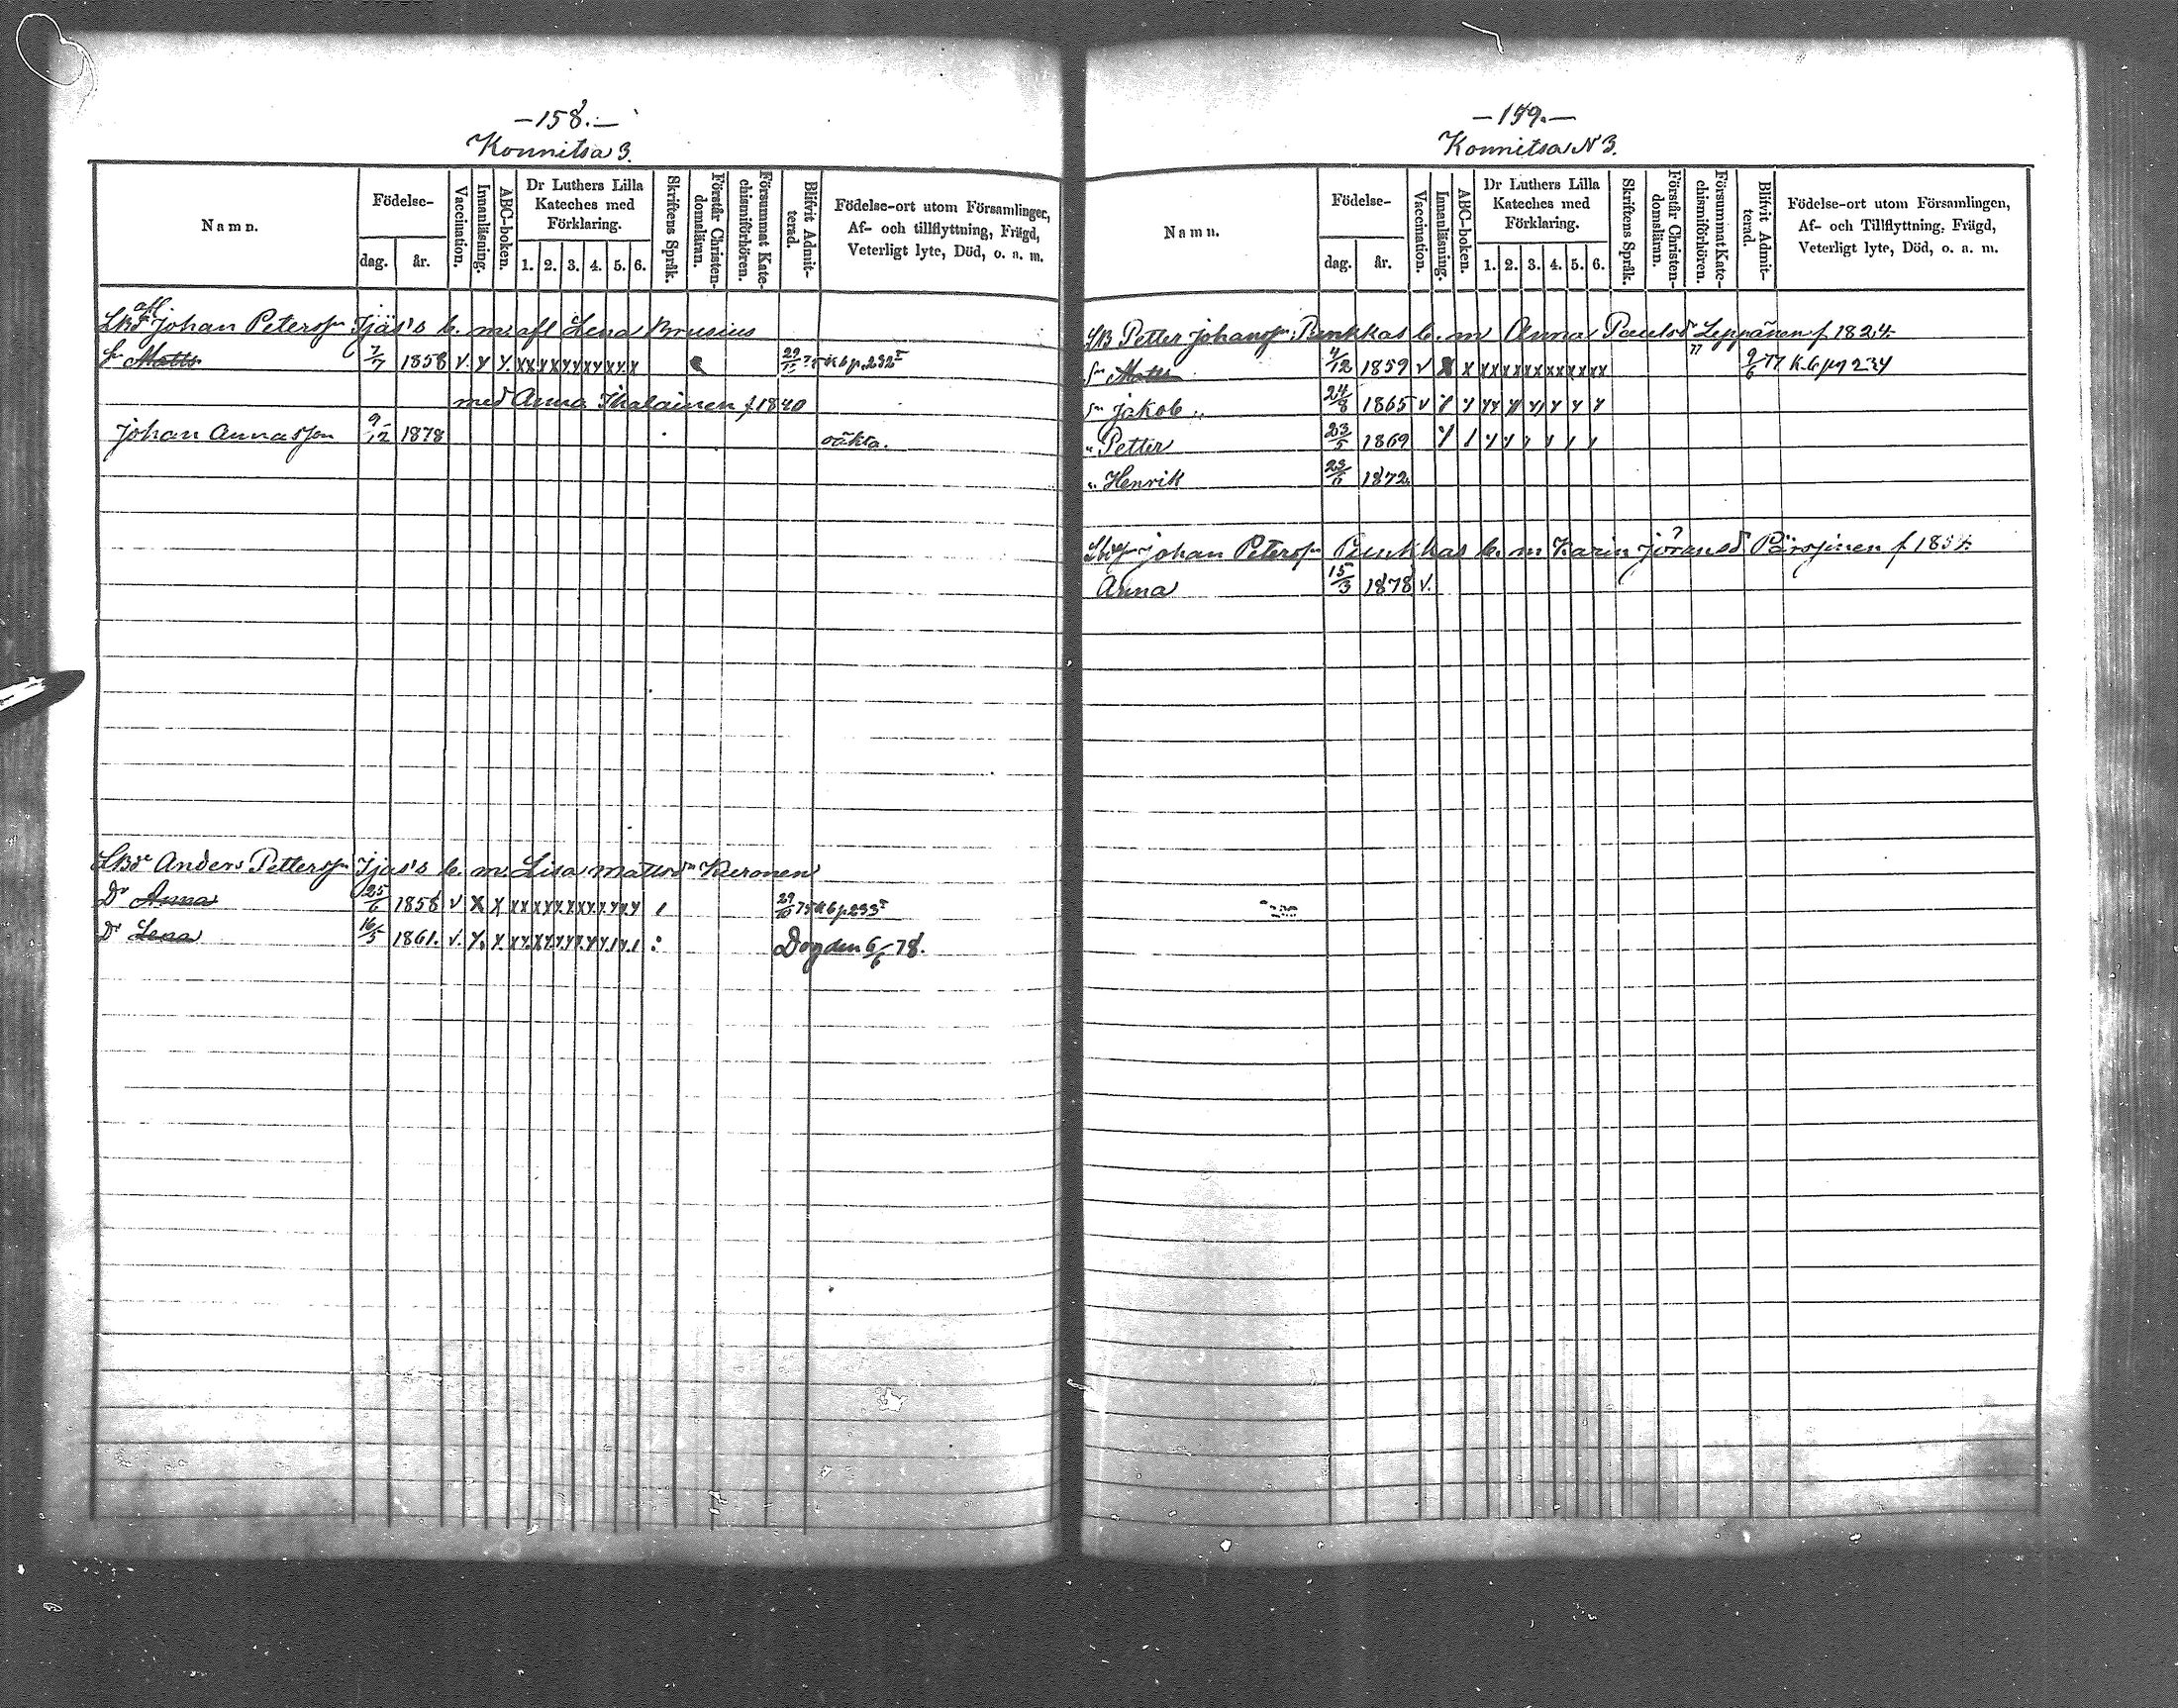 —158.—
Konnitsa 3.
Namn.
Födelse-
dag. år.
Vaccination.
Innanläsning.
ABC-boken.
Dr Luthers Lilla Kateches med Förklaring.
1. 2. 3. 4. 5. 6.
Skriftens Språk.
Förstår Christen-domsläran.
Försummat Kate-chismiförhören.
Blifvit Admit-terad.
Födelse-ort utom Församlingen,
Af- och tillflyttning, Frägd,
Veterligt lyte, Död, o. a. m.
afl
Johan Petersson Tjäs's b. m. afl Lena Brusius
Matts 7/7 1858 v. y y. x x x y x y y x y x y. x 29/ 75 Kb p. 232
med Anna Ihalainen f 1840
Johan Annasson 9/12 1878 oäkta.
Anders Petterssn Tjäs's b. m. Lisa Mattsdr Kueronen
Dr Anna 25/6 1858 v x x 29/10 75 Kb p 233
Dr Lena 16/5 1861. v. Dog den 6/6 78.
—159.—
Konnitsa N 3.
Namn.
Födelse-
dag. år.
Vaccination.
Innanläsning.
ABC-boken.
Dr Luthers Lilla Kateches med Förklaring.
1. 2. 3. 4. 5. 6.
Skriftens Språk.
Förstår Christen-domsläran.
Försummat Kate-chismiförhören.
Blifvit Admit-terad.
Födelse-ort utom Församlingen,
Af- och Tillflyttning, Frägd,
Veterligt lyte, Död, o. a. m.
Petter Johanss. Punkkas b. m Anna Paulsd Leppänen f 1824.
Matts 4/12 1859 v x x 77 9/6 77 K. b pg 234
Jakob 24/8 1865 v
" Petter 23/5 1869
" Henrik 1872.
Johan Peterssn Punkkas b. m Karin Joransd ? Pärssinen f 1857.
Anna 15/3 1878 v.